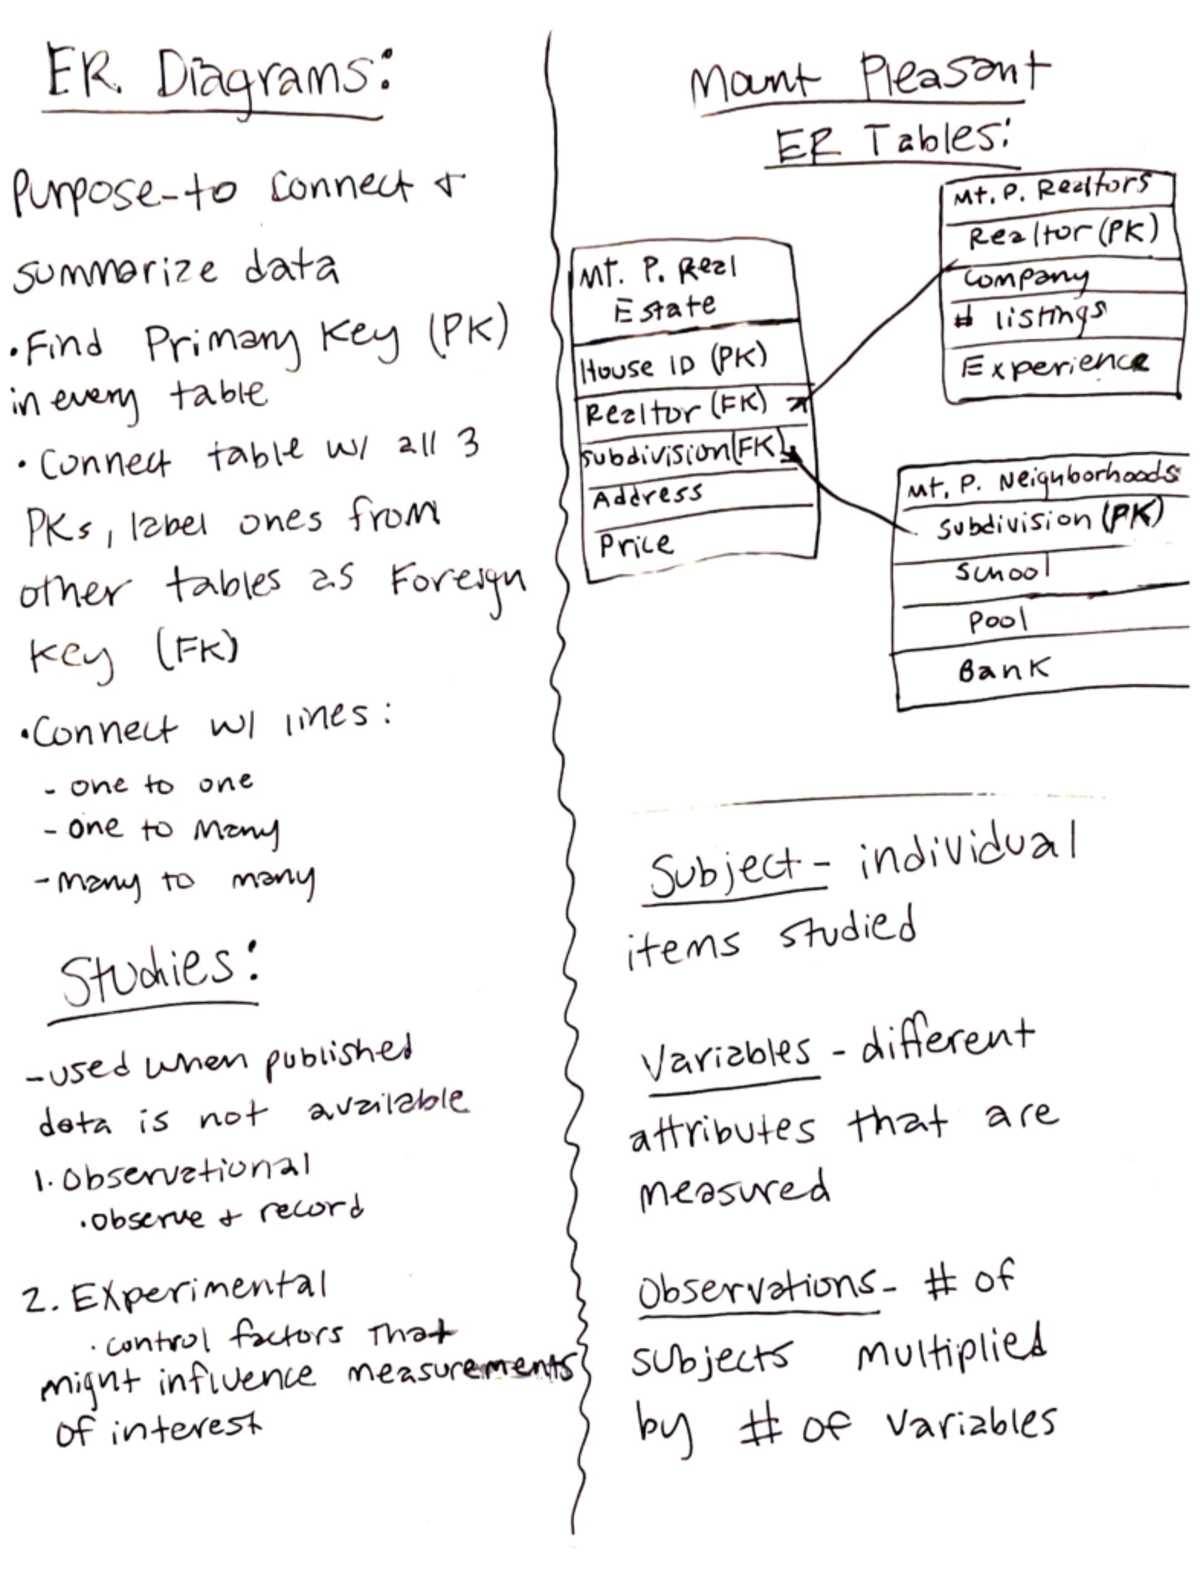 ER Diagrams:
Purpose - to connect +
summarize data
• Find Primary Key (PK)
in every table
• Connect table w/ all 3
PKs, label ones from
other tables as Foreign
Key (FK)
• Connect w/ lines:
- one to one
- one to many
- many to many
Studies:
- used when published
data is not available
1. Observational
• observe + record
2. Experimental
• control factors that
might influence measurements
of interest
Mount Pleasant
ER Tables:
Mt. P. Realtors
Realtor (PK)
Company
# listings
Experience
Mt. P. Real
Estate
House ID (PK)
Realtor (FK)
Subdivision (FK)
Address
Price
Mt. P. Neighborhoods
Subdivision (PK)
School
Pool
Bank
Subject - individual
items studied
Variables - different
attributes that are
measured
Observations - # of
subjects multiplied
by # of variables